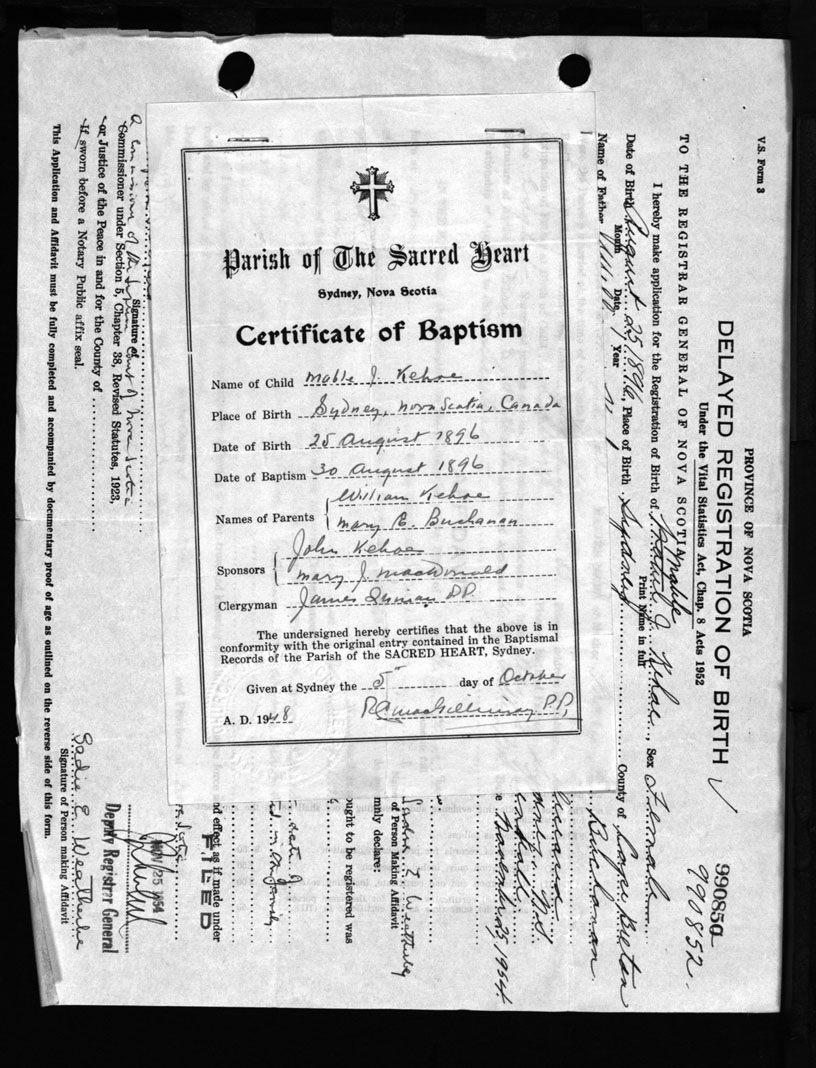 Parish of The Sacred Heart
Sydney, Nova Scotia
Certificate of Baptism
Name of Child Mable J. Kehoe
Place of Birth Sydney, Nova Scotia, Canada
Date of Birth 25 August 1896
Date of Baptism 30 August 1896
Names of Parents William Kehoe
Mary C. Buchanan
Sponsors John Kehoe
Mary J. MacDonald
Clergyman James P.P.
The undersigned hereby certifies that the above is in
conformity with the original entry contained in the Baptismal
Records of the Parish of the SACRED HEART, Sydney.
Given at Sydney the 5 day of October
A. D. 1948 MacGillivray P.P.
V.S. Form 3
PROVINCE OF NOVA SCOTIA
DELAYED REGISTRATION OF BIRTH
990850
990852
Under the Vital Statistics Act, Chap. 8 Acts 1952
TO THE REGISTRAR GENERAL OF NOVA SCOTIA
I hereby make application for the Registration of Birth of J. Kehoe, Sex Female
Print Name in full
Date of Birth August 25, 1896, Place of Birth, Sydney County of Cape Breton
Month Date Year
Name of Father Buchanan
November 25, 1954
Weatherby
of Person Making Affidavit
mnly declare:
ought to be registered was
nd effect as if made under
FILED
NOV 25 1954
Deputy Registrar General
Signature of
a Commissioner of the Supreme Court of Nova Scotia
Commissioner under Section 5, Chapter 38, Revised Statutes, 1923,
or Justice of the Peace in and for the County of
If sworn before a Notary Public affix seal.
Sadie E. Weatherbie
Signature of Person making Affidavit
This Application and Affidavit must be fully completed and accompanied by documentary proof of age as outlined on the reverse side of this form.